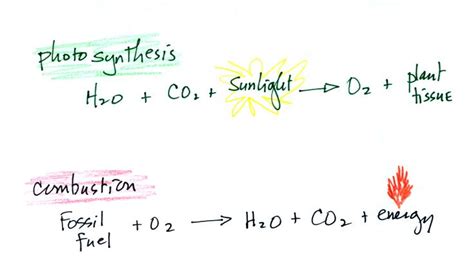 photosynthesis
H2O + CO2 + Sunlight → O2 + plant tissue
Combustion
Fossil fuel + O2 → H2O + CO2 + energy